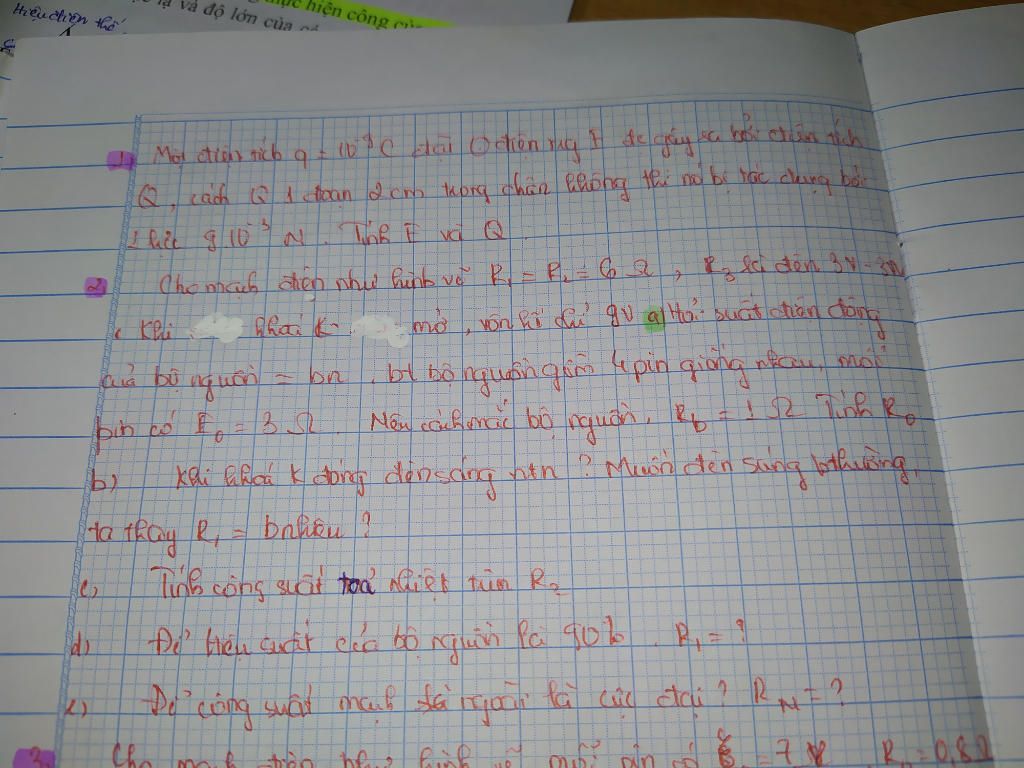 Hiệu điện thế
thực hiện công của
lạ và độ lớn của
1, Một điện tích q = 10⁻⁹ C đặt () điện trg
Q, cách Q 1 đoạn 2 cm trong chân không thì nó bị tác dụng bởi
1 lực 9 10⁻³ N. Tính E và Q
2 Cho mạch điện như hình vẽ R₁ = R₂ = 6 Ω, R₃ là đèn 3V - 3W
Khi khoá K mở, vôn kế chỉ 9V a) Hỏi suất điện động
của bộ nguồn = bn, bt bộ nguồn gồm 4 pin giống nhau, mỗi
pin có E₀ = 3 Ω. Nêu cách mắc bộ nguồn, Rb = 1 Ω Tính R₀
b) Khi khoá K đóng đèn sáng ntn? Muốn đèn sáng bthường,
ta thay R₁ = bnhiêu?
c, Tính công suất toả nhiệt trên R₂
d) Để hiệu suất của bộ nguồn là 90%. R₁ = ?
e) Để công suất mạch ngoài là cực đại? R_N = ?
3. Cho mạch điện như hình vẽ mỗi pin có = 7 = 0,8 Ω